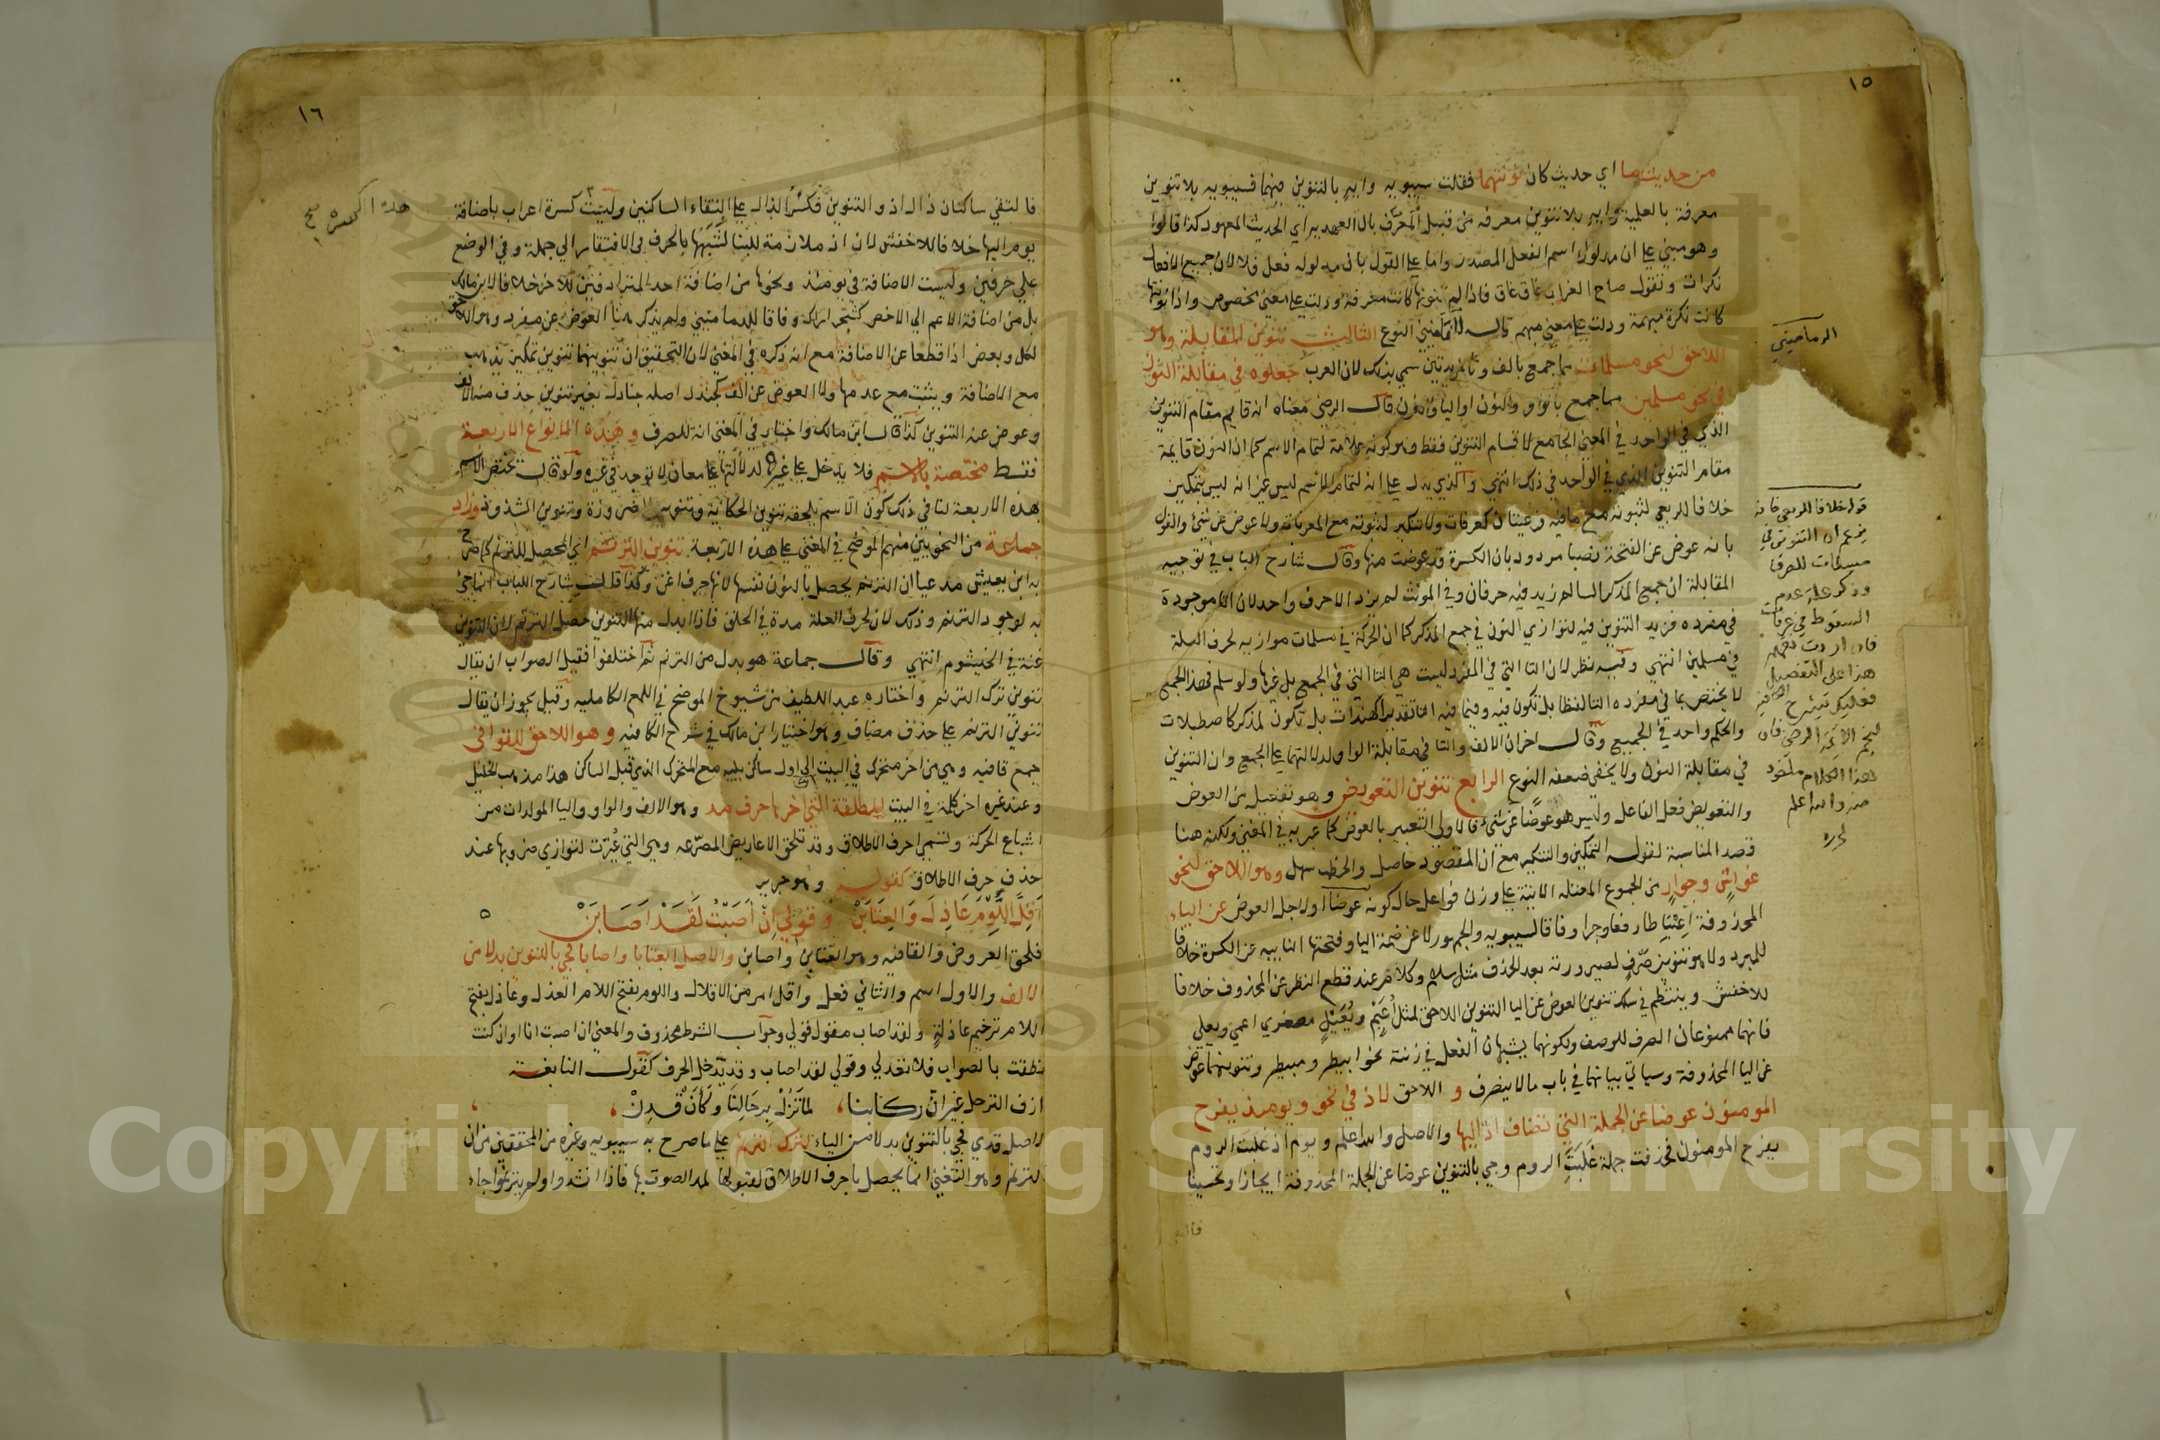 ١٥
من حديث ما اي حديث كان نونتهما فقلت سيبويه وايه بالتنوين فيهما فسيبويه بلا تنوين
معرفة بالعلمية وايه بلا تنوين معرفة من قبيل المعرف بال العهدية اي الحديث المعهود كذا قالوا
وهو مبني على ان مدلول اسم الفعل المصدر واما على القول بان مدلوله فعل فلا لان جميع الافعال
نكرات وتقول صاح الغراب غاق غاق فاذا لم تنونها كانت معرفة ودلت على معنى مخصوص واذا نونتها
كانت نكرة مبهمة ودلت على معنى مبهم النوع الثالث تنوين المقابلة وهو
اللاحق لنحو مسلمات مما جمع بالف وتا مزيدتين سمي بذلك لان العرب جعلوه في مقابلة النون
في نحو مسلمين مما جمع بالواو والنون او اليا والنون قال الرضي معناه انه قايم مقام التنوين
الذي في الواحد في المعنى الجامع لاقسام التنوين فقط وهو كونه علامة لتمام الاسم كما ان النون قايمة
مقام التنوين الذي في الواحد في ذلك انتهى والذي يدل على انه لتمام الاسم ليس غير انه ليس بتمكين
خلافا للربعي لثبوته مع مافيه فرعيتان كعرفات ولا تنكير لثبوته مع المعربات ولا عوض عن شيء والقول
بانه عوض عن الفتحة نصبا مردود بان الكسرة قد عوضت منها وقال شارح اللباب في توجيه
المقابلة ان جمع المذكر السالم زيد فيه حرفان وفي المونث لم يزد الا حرف واحد لان التا موجودة
في مفرده فزيد التنوين فيه ليوازي النون في جمع المذكر كما ان الحركة في مسلمات موازية لحرف العلة
في مسلمين انتهى وفيه نظر لان التا التي في المفرد ليست هي التا التي في الجمع بل غيرها ولو سلم فهذا الجمع
لا يختص بما في مفرده التا لفظا بل تكون فيه وفيما فيه التا تقديرا كهندات بل تكون لمذكر كاصطبلات
والحكم واحد في الجميع وقال اخر ان الالف والتا في مقابلة الواو لدلالتهما على الجمع وان التنوين
في مقابلة النون ولا يخفى ضعفه النوع الرابع تنوين التعويض وهو تفعيل من العوض
والتعويض فعل الفاعل وليس هو عوضا عن شيء فالاولى التعبير بالعوض كما عبر به في المغني ولكنه هنا
قصد المناسبة لقوله التمكين والتنكير مع ان المقصود حاصل والخطب سهل وهو اللاحق لنحو
غواش وجوار من الجموع المعتلة الاتية على وزن فواعل حال كونه عوضا او لاجل العوض عن الياء
المحذوفة اعتباطا رفعا وجرا وفاقا لسيبويه والجمهور لا عن ضمة اليا وفتحتها النايبة عن الكسرة خلافا
للمبرد ولا هو تنوين صرف لصيرورته بعد الحذف مثل سلام وكلام عند قطع النظر عن المحذوف خلافا
للاخفش وينتظم في سلك تنوين العوض عن اليا التنوين اللاحق لمثل اعيم ويعيل مصغري اعمى ويعلى
فانهما ممنوعان الصرف للوصف ولكونهما يشبهان الفعل في زنة نحو ابيطر ومبيطر وتنوينهما عوض
عن اليا المحذوفة وسياتي بيانهما في باب مالا ينصرف و اللاحق لاذ في نحو ويومئذ يفرح
المومنون عوضا عن الجملة التي تضاف اذ اليها والاصل والله اعلم ويوم اذ غلبت الروم
يفرح المومنون فحذفت جملة غلبت الروم وجي بالتنوين عوضا عن الجملة المحذوفة ايجازا وتحسينا
فالتقى
الدماميني
قوله خلافا للربعي فانه
يزعم ان التنوين في
مسلمات للصرف
وذكر علة عدم
السقوط في عرفات
فان اردت فهم
هذا على التفصيل
فعليك بشرح الكافية
لنجم الائمة الرضي فان
هذا الكلام ماخوذ
منه والله اعلم
١٦
فالتقى ساكنان ذال اذ والتنوين فكسر الذال على التقاء الساكنين وليست كسرة اعراب باضافة
يوم اليها خلافا للاخفش لان اذ ملازمة للبنا لشبهها بالحرف في الافتقار الى جملة وفي الوضع
على حرفين وليست الاضافة في يومئذ ونحوها من اضافة احد المترادفين للاخر خلافا لابن مالك
بل من اضافة الاعم الى الاخص كشجر اراك وفاقا للدماميني ولم يذكر هنا العوض عن مفرد وهو اللاحق
لكل وبعض اذا قطعا عن الاضافة مع انه ذكره في المغني لان التحقيق ان تنوينهما تنوين تمكين يذهب
مع الاضافة ويثبت مع عدمها ولا العوض عن الف كجندل اصله جنادل بغير تنوين حذف منه الالف
وعوض عنه التنوين كذا قال ابن مالك واختار في المغني انه للصرف وهذه الانواع الاربعة
فقط مختصة بالاسم فلا يدخل على غيره لدلالتها على معان لا توجد في غيره ولو قال تختص الاسم
بهذه الاربعة لنافى ذلك كون الاسم يلحقه تنوين الحكاية وتنوين الضرورة وتنوين الشذوذ وزاد
جماعة من النحويين منهم الموضح في المغني على هذه الاربعة تنوين الترنم اي المحصل للترنم كما صرح
به ابن يعيش مدعيا ان الترنم يحصل بالنون نفسها لانها حرف اغن وكذا قال شارح اللباب انما جي
به لوجود الترنم وذلك لان حرف العلة مدة في الحلق فاذا ابدل منها التنوين حصل الترنم لان التنوين
غنة في الخيشوم انتهى وقال جماعة هو بدل من الترنم ثم اختلفوا فقيل الصواب ان يقال
تنوين ترك الترنم واختاره عبد اللطيف من شيوخ الموضح في اللمع الكاملية وقيل يجوز ان يقال
تنوين الترنم على حذف مضاف وهو اختيار ابن مالك في شرح الكافيه وهو اللاحق للقوافي
جمع قافيه وهي من اخر متحرك في البيت الى اول ساكن يليه مع المتحرك الذي قبل الساكن هذا مذهب الخليل
وعند غيره اخر كلمة في البيت المطلقة التي اخرها حرف مد وهو الالف والواو واليا المولدات من
اشباع الحركة وتسمى احرف الاطلاق وقد تلحق الاعاريض المصرعه وهي التي غيرت لتوازي ضروبها عند
حذف حرف الاطلاق كقوله وهو جرير
اقلي اللوم عاذل والعتابن وقولي ان اصبت لقد اصابن
فلحق العروض والقافية وهو العتابن واصابن والاصل العتابا واصابا فجي بالتنوين بدلا من
الالف والاول اسم والثاني فعل واقل امر من الاقلال واللوم بفتح اللام العذل وعاذل بفتح
اللام ترخيم عاذلة ولقد اصاب مقول قولي وجواب الشرط محذوف والمعنى ان اصبت انا او ان كنت
نطقت بالصواب فلا تعذلي وقولي لقد اصاب وقد يدخل الحرف كقول النابغة
ازف الترحل غير ان ركابنا لما تزل برحالنا وكان قدن
الاصل قدي فجي بالتنوين بدلا من الياء لترك الترنم على ما صرح به سيبويه وغيره من المحققين من ان
الترنم وهو التغني انما يحصل باحرف الاطلاق لقبولها لمد الصوت بها فاذا انشدوا ولم يترنموا جاءوا
Copyright © King Saud University